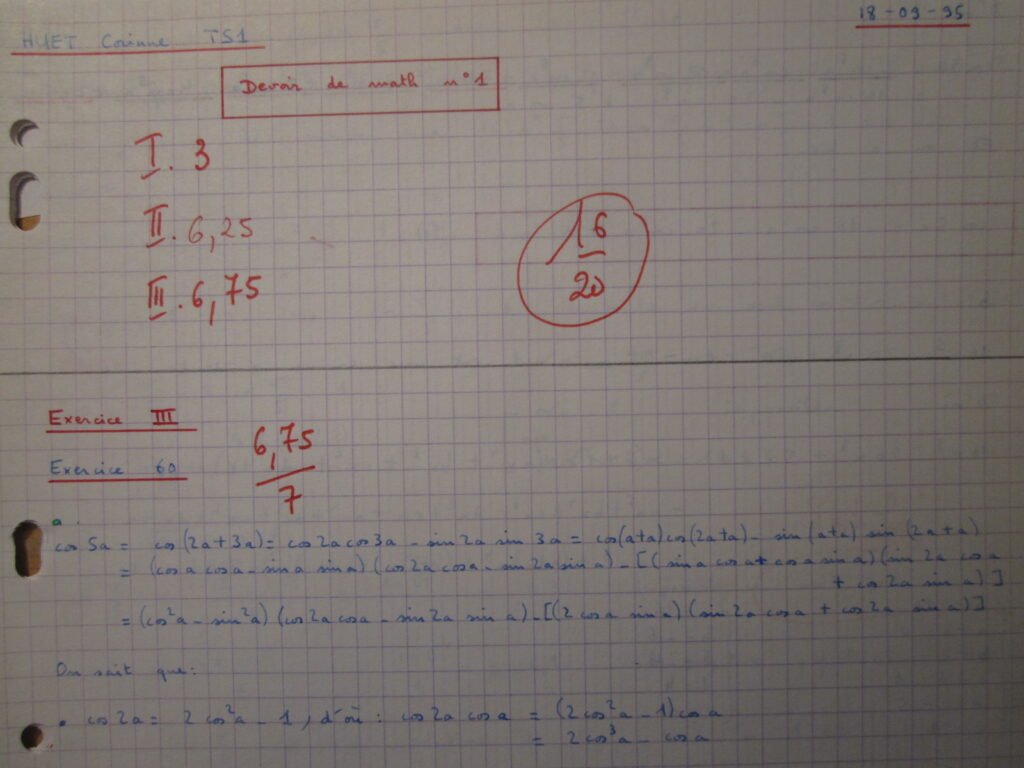 18-09-95
HUET Corinne TS1
Devoir de math n°1
I. 3
II. 6,25
III. 6,75
16
20
Exercice III
Exercice 60
6,75
7
a.
cos 5a = cos(2a+3a) = cos2a cos3a - sin2a sin 3a = cos(a+a)cos(2a+a) - sin(a+a) sin (2a+a)
= (cosa cosa - sina sina) (cos2a cosa - sin2a sina) - [(sina cosa + cosa sina) (sin 2a cosa
+ cos 2a sin a)]
= (cos²a - sin²a) (cos2a cosa - sin2a sin a) - [(2 cosa sina) (sin2a cosa + cos2a sina)]
On sait que:
• cos2a = 2 cos²a - 1, d'où : cos2a cosa = (2cos²a - 1)cosa
= 2cos³a - cosa